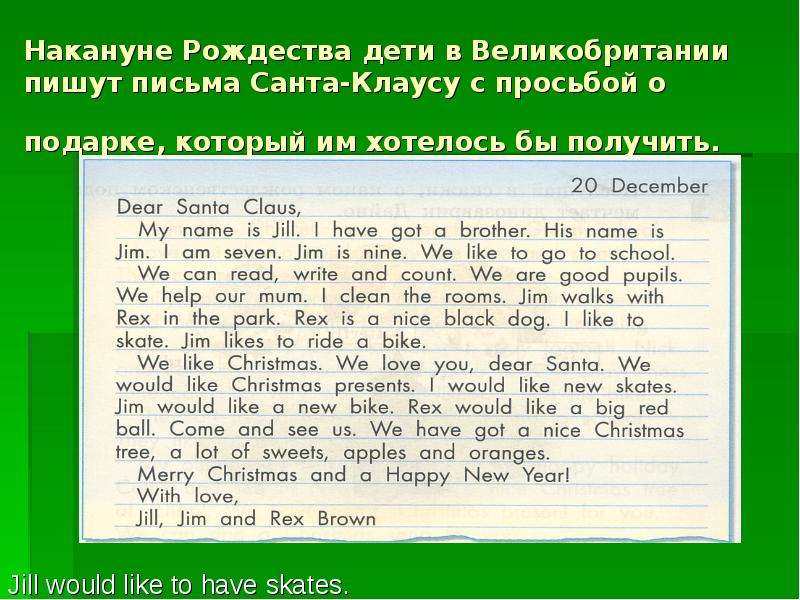 Накануне Рождества дети в Великобритании
пишут письма Санта-Клаусу с просьбой о
подарке, который им хотелось бы получить.
20 December
Dear Santa Claus,
My name is Jill. I have got a brother. His name is
Jim. I am seven. Jim is nine. We like to go to school.
We can read, write and count. We are good pupils.
We help our mum. I clean the rooms. Jim walks with
Rex in the park. Rex is a nice black dog. I like to
skate. Jim likes to ride a bike.
We like Christmas. We love you, dear Santa. We
would like Christmas presents. I would like new skates.
Jim would like a new bike. Rex would like a big red
ball. Come and see us. We have got a nice Christmas
tree, a lot of sweets, apples and oranges.
Merry Christmas and a Happy New Year!
With love,
Jill, Jim and Rex Brown
Jill would like to have skates.